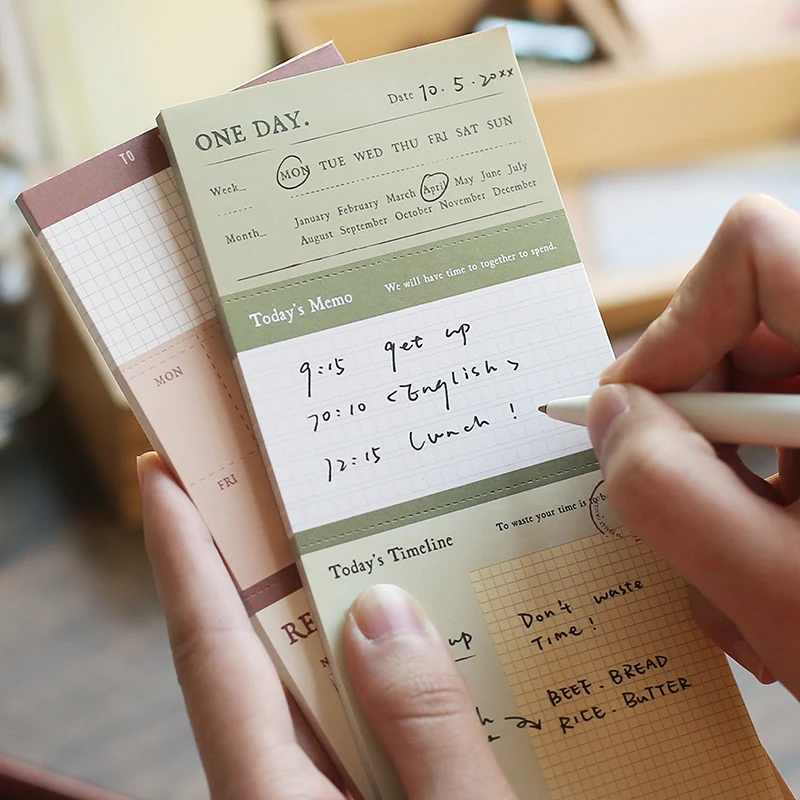 TO
ONE DAY.
Date 10.5.20xx
Week_ MON TUE WED THU FRI SAT SUN
Month_ January February March April May June July
August September October November December
Today's Memo We will have time to together to spend.
9:15 get up
10:10 <English>
12:15 Lunch !
MON
FRI
Today's Timeline To waste your time is to b
up
Don't waste
Time!
BEEF. BREAD
RICE. BuTTER
RE